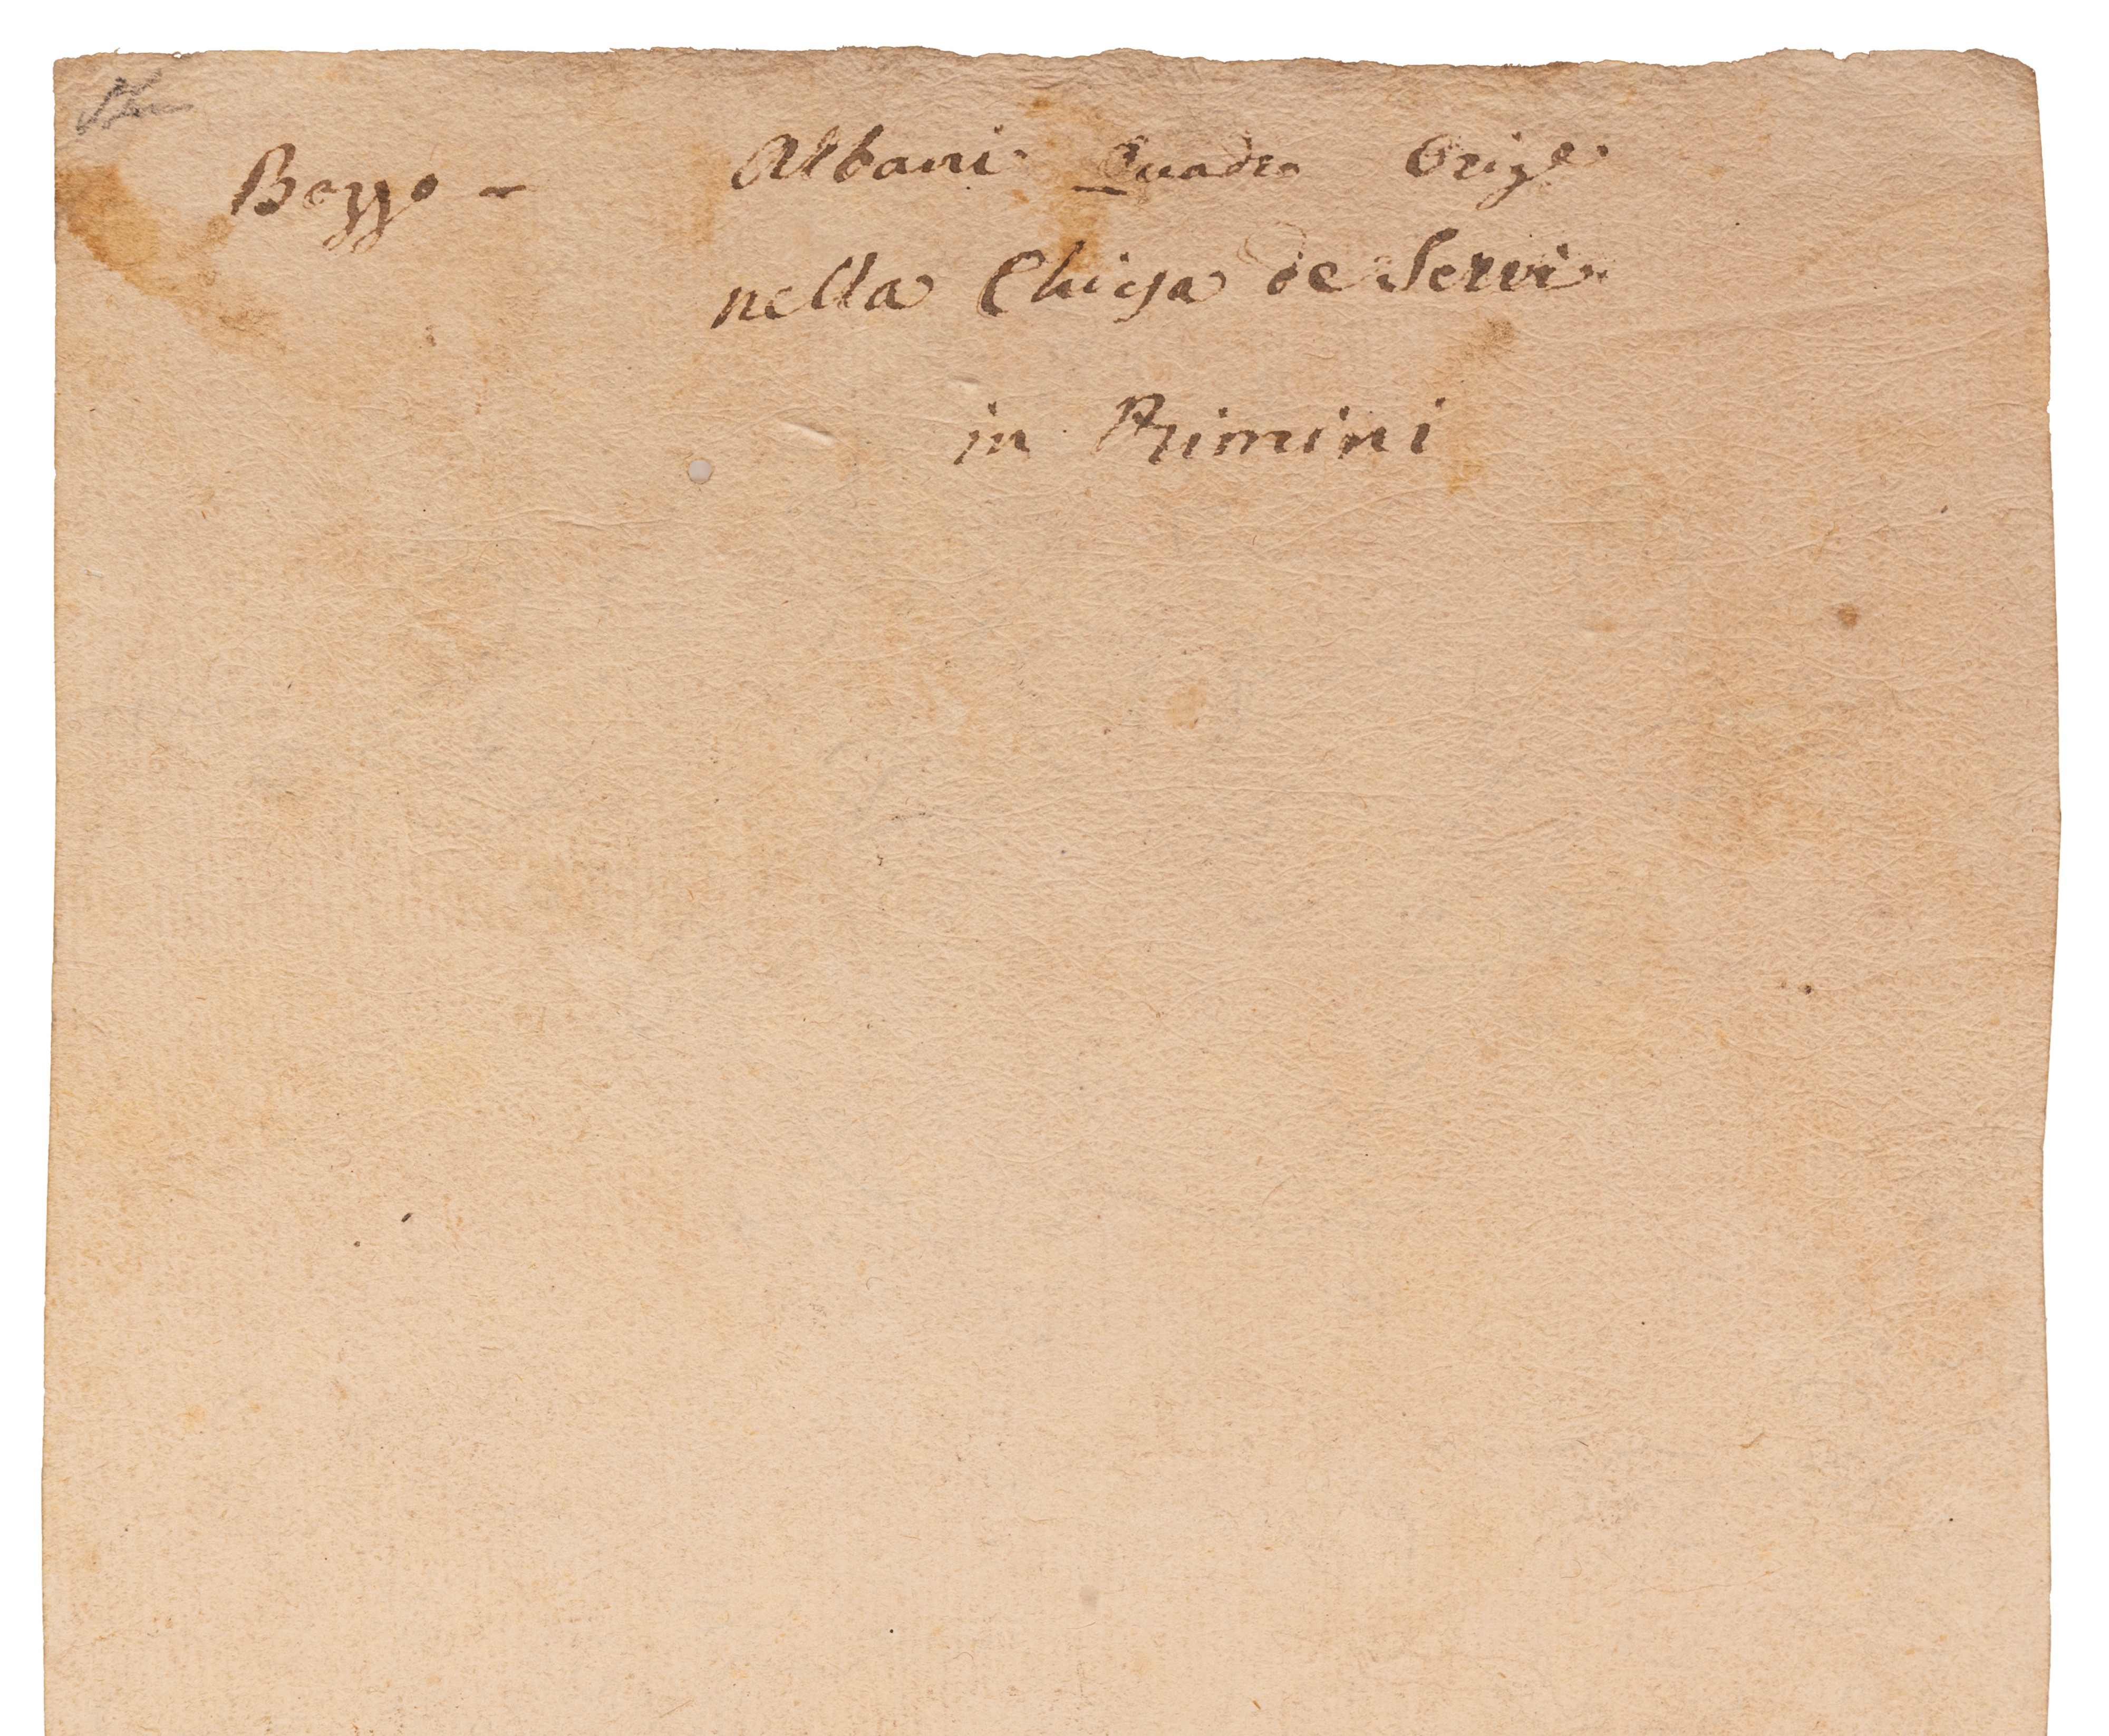 Bozzo - Albani Quadro Orige
nella Chiesa de Servi
in Rimini